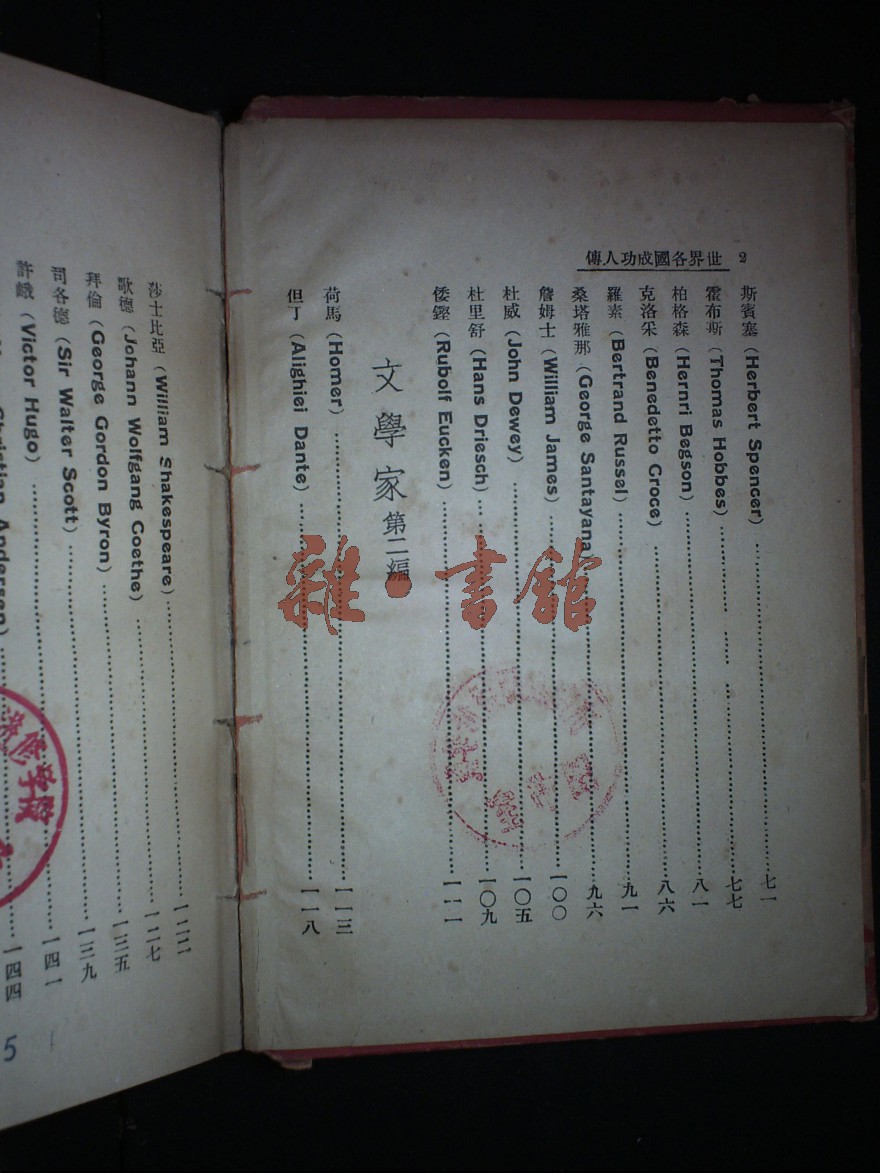 2 世界各國成功人傳
斯賓塞 (Herbert Spencer) 七一
霍布斯 (Thomas Hobbes) 七七
柏格森 (Hernri Begson) 八一
克洛采 (Benedetto Croce) 八六
羅素 (Bertrand Russel) 九一
桑塔雅那 (George Santayana) 九六
詹姆士 (William James) 一〇〇
杜威 (John Dewey) 一〇五
杜里舒 (Hans Driesch) 一〇九
倭鏗 (Rubolf Eucken) 一一一
文學家 第二編
荷馬 (Homer) 一一三
但丁 (Alighiei Dante) 一一八
莎士比亞 (William Shakespeare) 一二二
歌德 (Johann Wolfgang Coethe) 一二七
拜倫 (George Gordon Byron) 一三五
司各德 (Sir Walter Scott) 一三九
許峨 (Victor Hugo) 一四一
Christian Andersen) 一四四
雜·書館
修學院
5